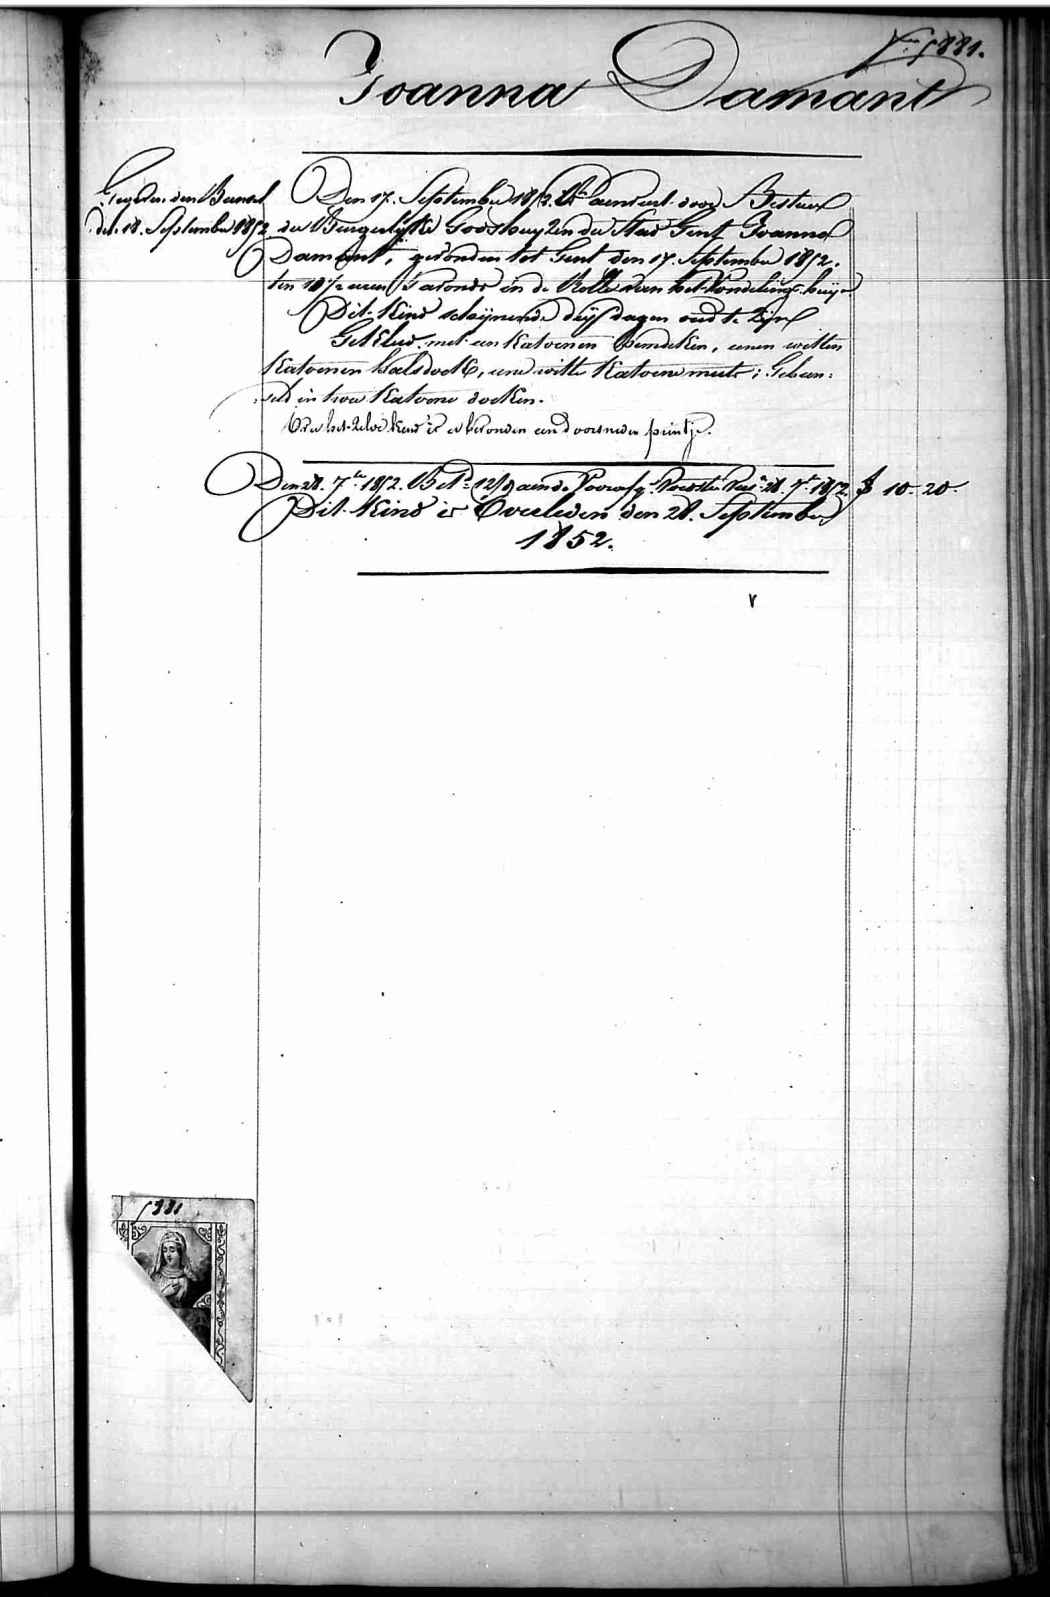 N.o 1881.
Joanna Damant
Den 18. September 1852
Den 17. September 1852. is aenveerd door Bestuer
der Burgerlijke Godshuyzen der Stad Gent Joanna
Damant, gevonden tot Gent den 17. September 1852.
ten 10 1/2 uren 's avonds in de Rolle van het Vondeling-huys
Dit Kind schijnende dry dagen oud te zijn
Gekleed met een katoenen hemdeken, eenen witten
katoenen halsdoek, eene witte katoene muts; Gebun-
deld in twee katoene doeken.
Op het zelve kind is er bevonden een doorsneden printje.
Den 28. 7.ber 1852. 28. 7.ber 1852. 10-20-
Dit Kind is Overleden den 28. September
1852.
1881